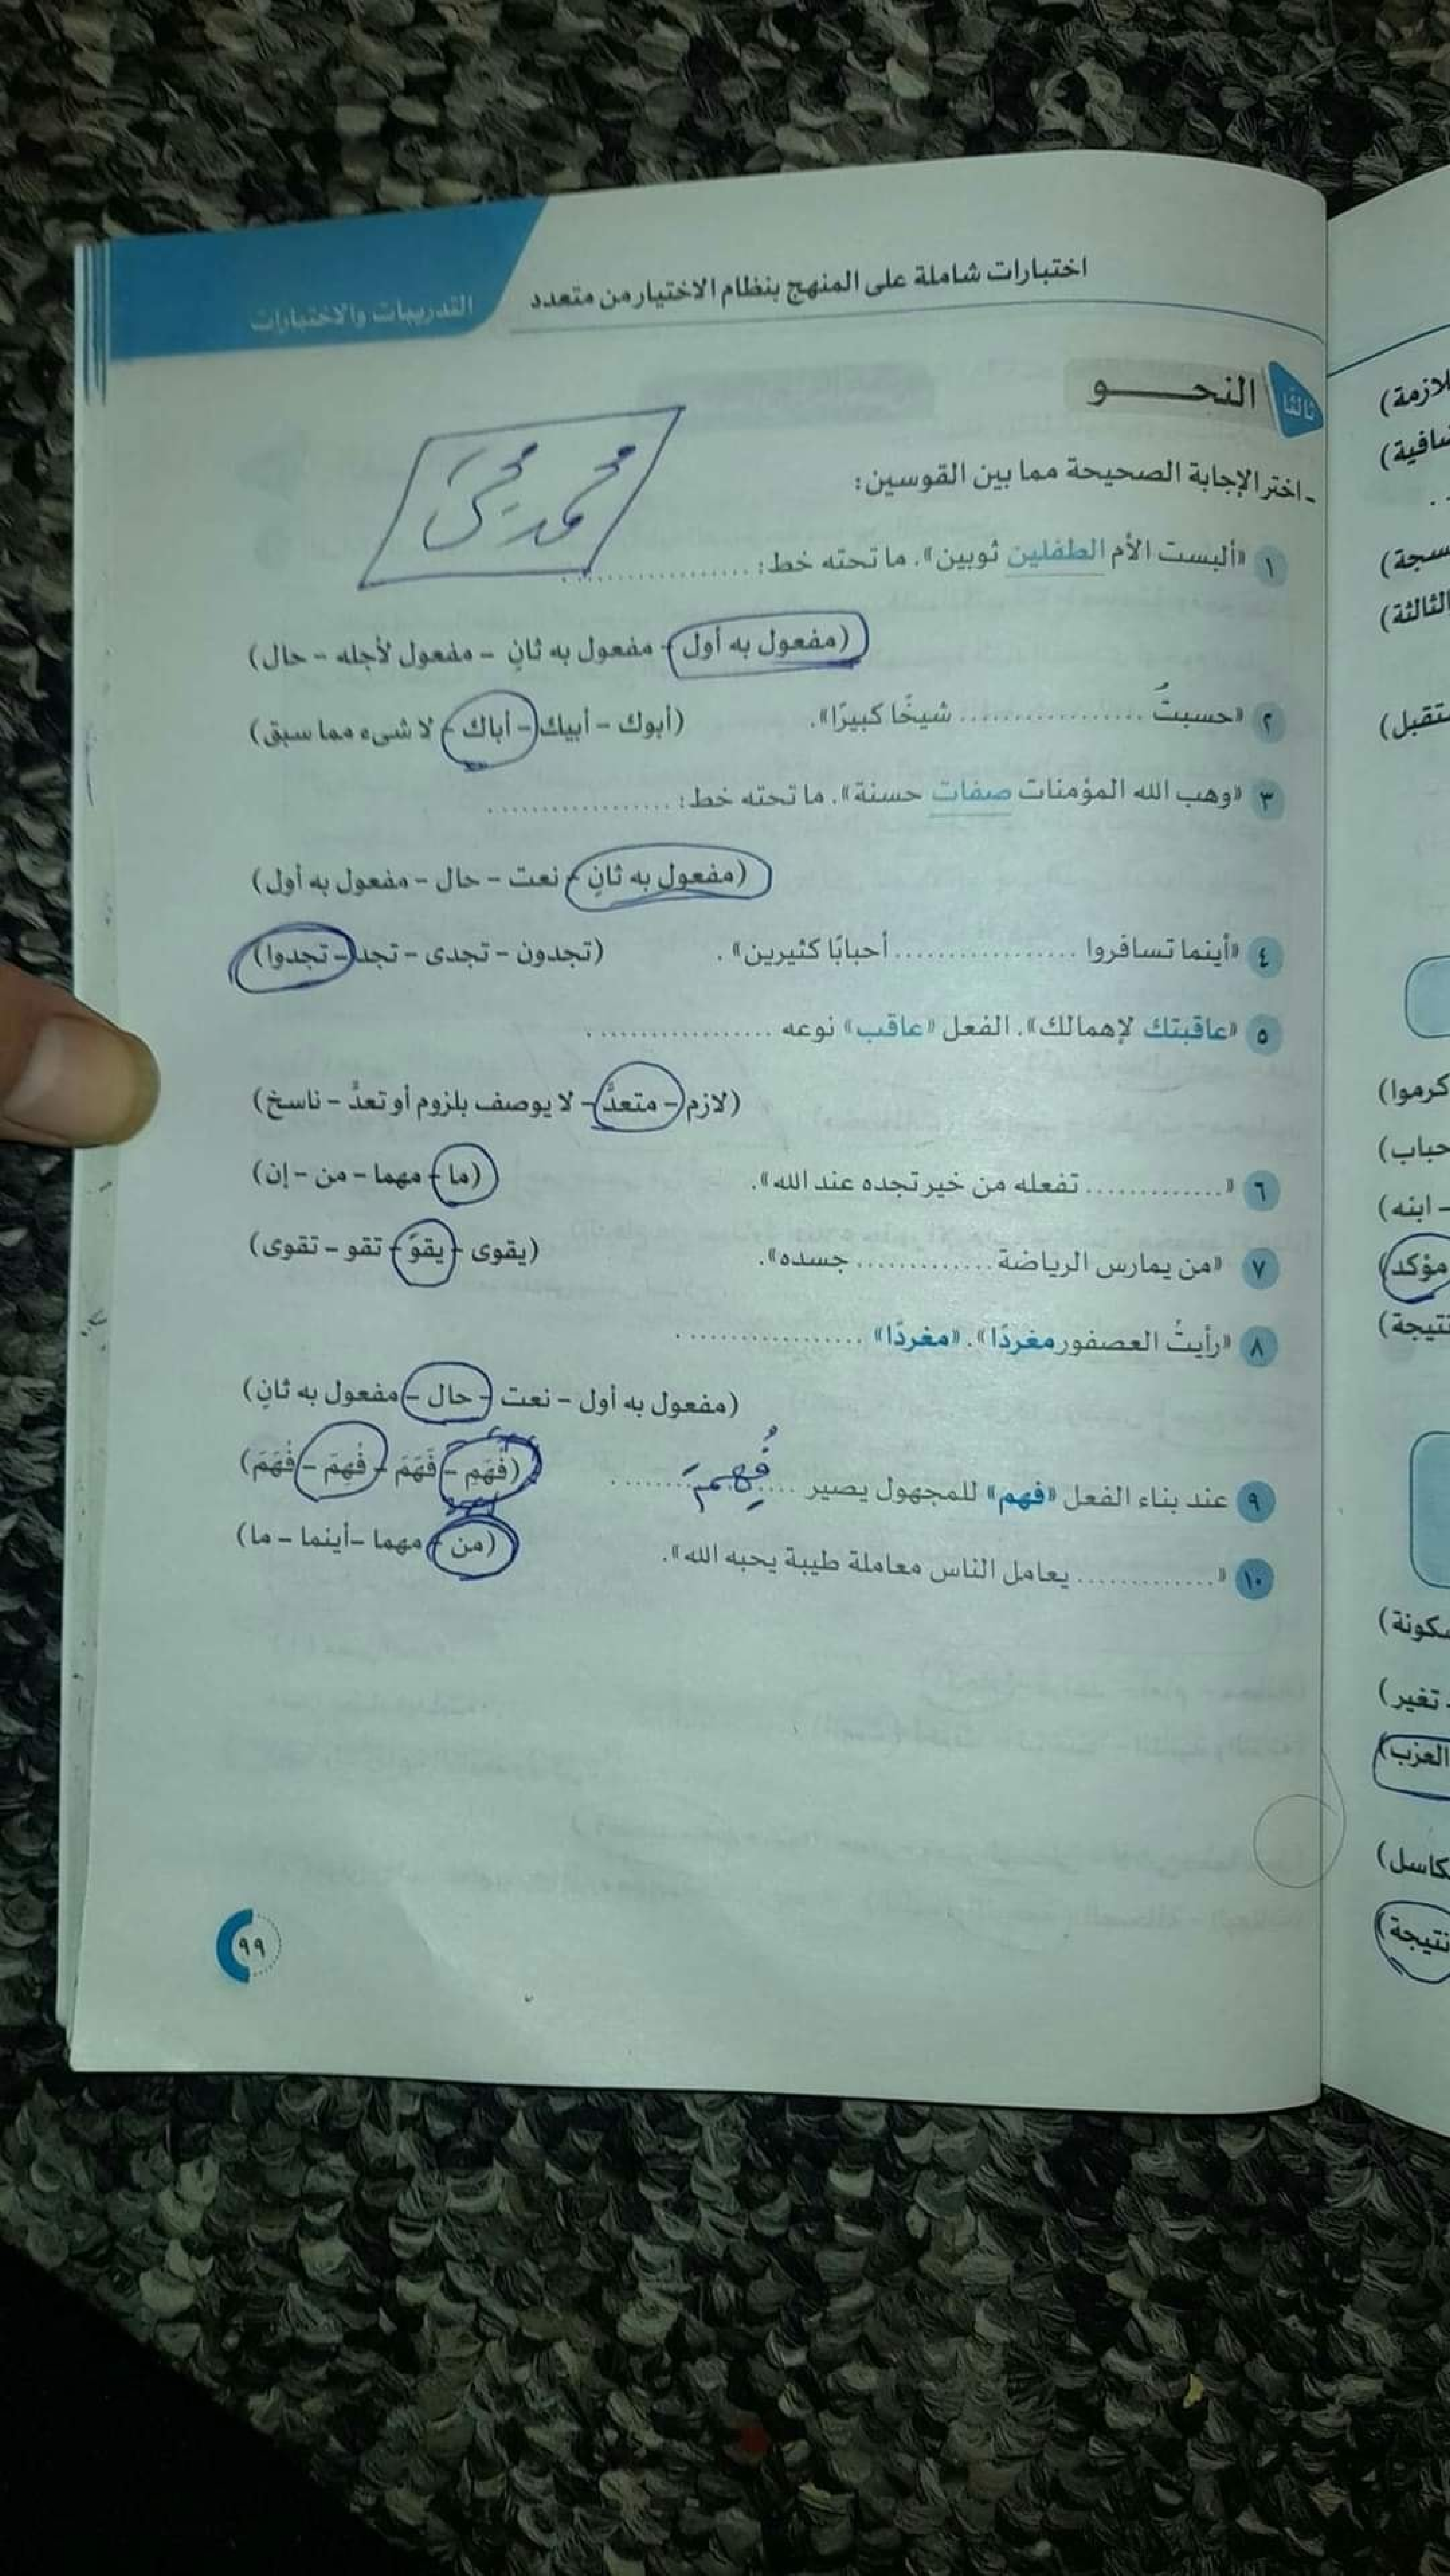 اختبارات شاملة على المنهج بنظام الاختيار من متعدد
التدريبات والاختبارات
ثالثا النحـــــو
محمد يحيى
- اختر الإجابة الصحيحة مما بين القوسين:
١ «ألبست الأم الطفلين ثوبين». ما تحته خط: ..................
(مفعول به أول - مفعول به ثانٍ - مفعول لأجله - حال)
٢ «حسبتُ .................. شيخًا كبيرًا». (أبوك - أبيك - أباك - لا شىء مما سبق)
٣ «وهب الله المؤمنات صفات حسنة». ما تحته خط: ..................
(مفعول به ثانٍ - نعت - حال - مفعول به أول)
٤ «أينما تسافروا .................. أحبابًا كثيرين». (تجدون - تجدى - تجد - تجدوا)
٥ «عاقبتك لإهمالك». الفعل «عاقب» نوعه ..................
(لازم - متعدٍّ - لا يوصف بلزوم أو تعدٍّ - ناسخ)
٦ «............. تفعله من خير تجده عند الله». (ما - مهما - من - إن)
٧ «من يمارس الرياضة ............. جسده». (يقوى - يقوَ - تقو - تقوى)
٨ «رأيتُ العصفور مغردًا». «مغردًا» ..................
(مفعول به أول - نعت - حال - مفعول به ثانٍ)
٩ عند بناء الفعل «فهم» للمجهول يصير .................. فُهِمَ (فُهَمِ - فَهَمَ - فُهِمَ - فُهَمَ)
١٠ «............. يعامل الناس معاملة طيبة يحبه الله». (من - مهما - أينما - ما)
٩٩
سافية)
الثالثة)
كرموا)
حباب)
- ابنه)
مؤكد)
نتيجة)
تغير)
العزب)
نتيجة)